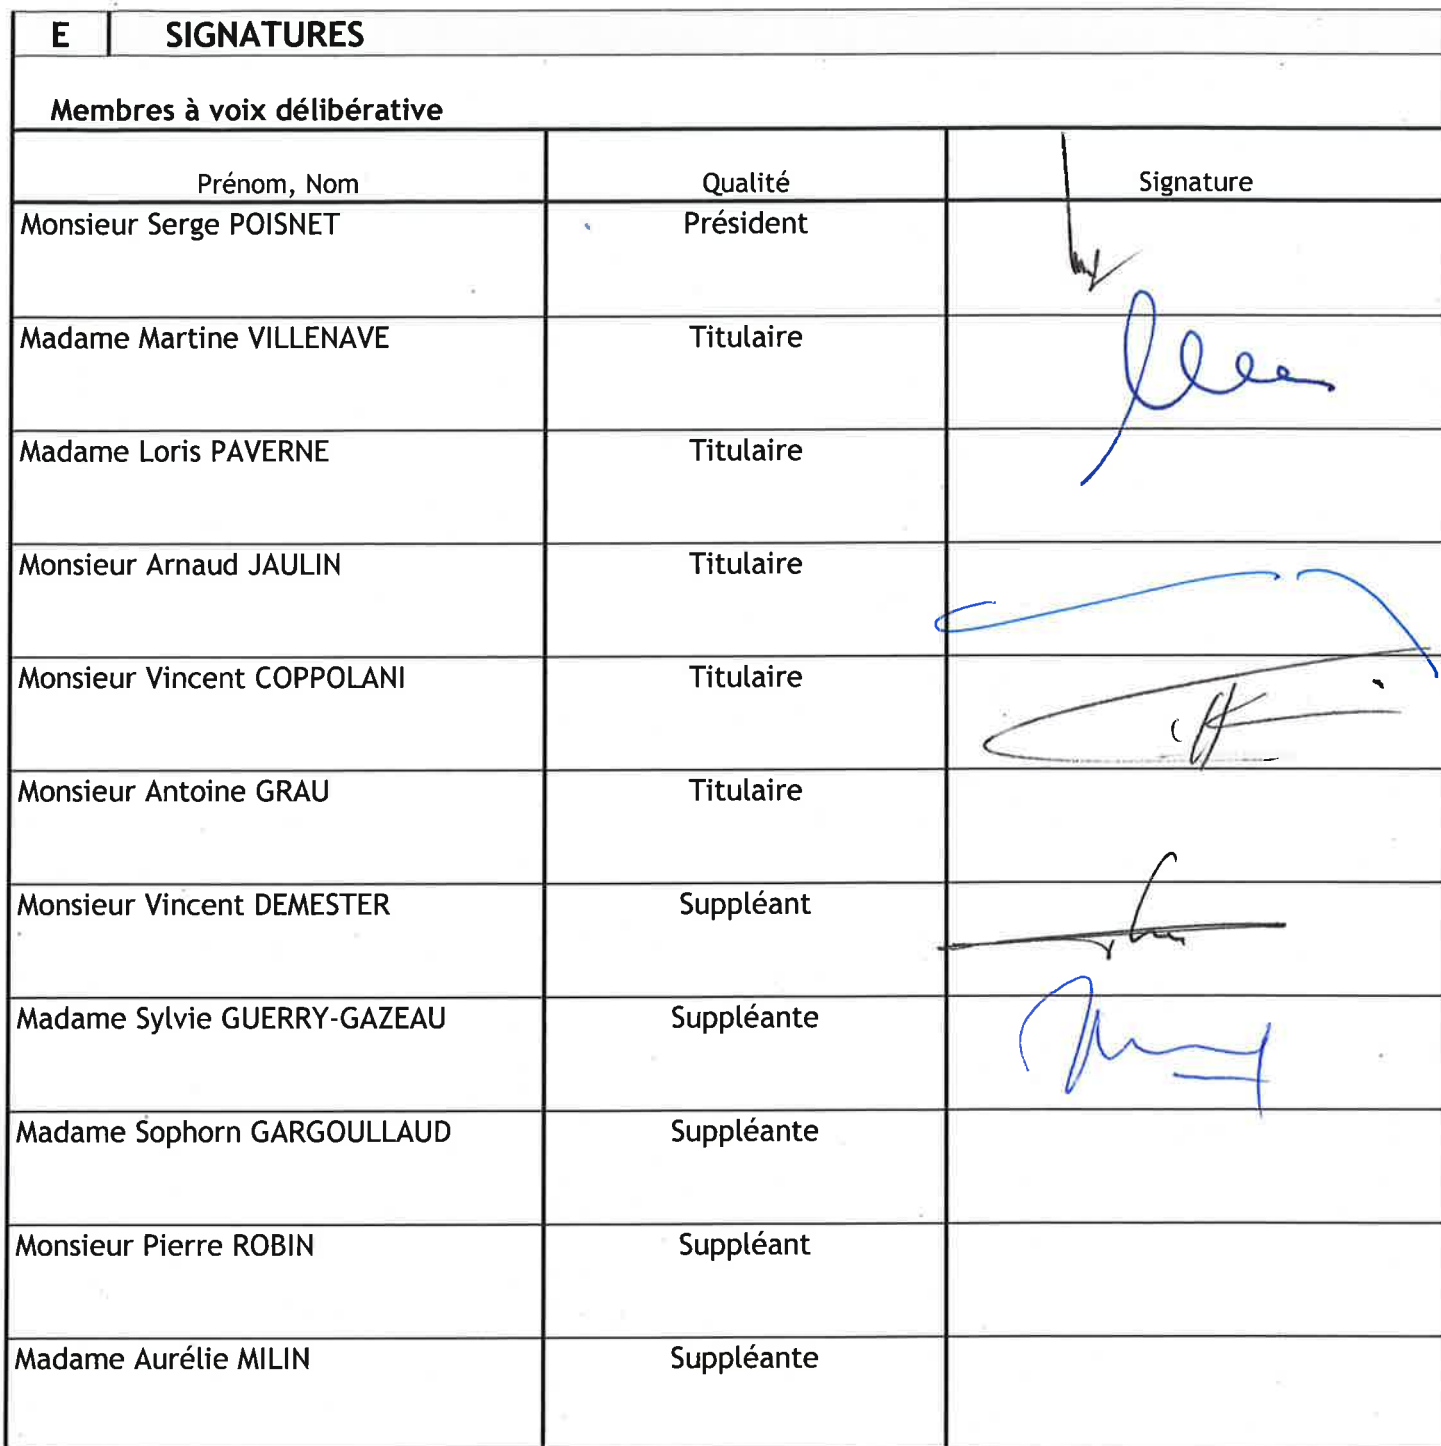 E SIGNATURES
Membres à voix délibérative
Prénom, Nom Qualité Signature
Monsieur Serge POISNET Président
Madame Martine VILLENAVE Titulaire
Madame Loris PAVERNE Titulaire
Monsieur Arnaud JAULIN Titulaire
Monsieur Vincent COPPOLANI Titulaire
Monsieur Antoine GRAU Titulaire
Monsieur Vincent DEMESTER Suppléant
Madame Sylvie GUERRY-GAZEAU Suppléante
Madame Sophorn GARGOULLAUD Suppléante
Monsieur Pierre ROBIN Suppléant
Madame Aurélie MILIN Suppléante